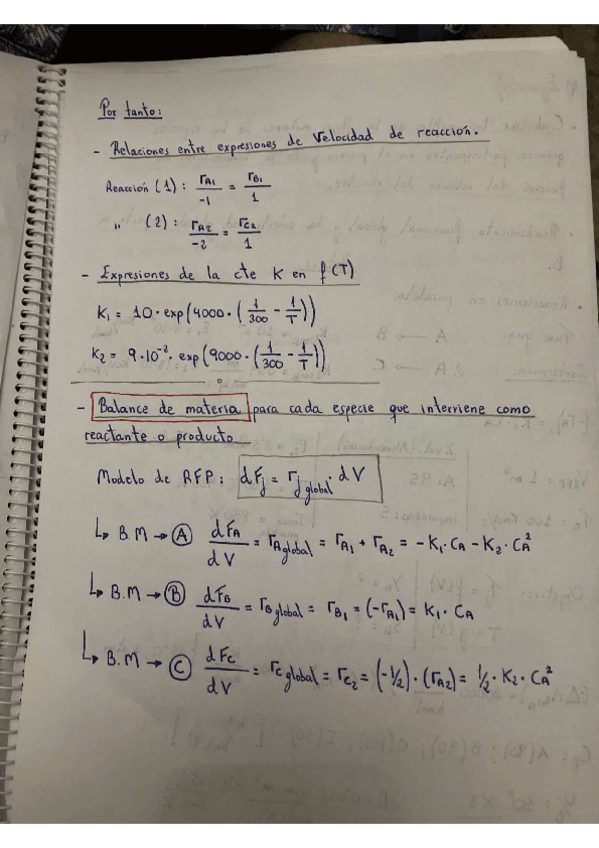 Por tanto:
- Relaciones entre expresiones de Velocidad de reacción.
Reacción (1): rA1/-1 = rB1/1
" (2): rA2/-2 = rC2/1
- Expresiones de la cte K en f(T)
K1 = 10·exp(4000·(1/300 - 1/T))
K2 = 9·10⁻²·exp(9000·(1/300 - 1/T))
- Balance de materia para cada especie que interviene como
reactante o producto
Modelo de RFP: dFj = rj global·dV
↳ B.M → Ⓐ dFA/dV = rA global = rA1 + rA2 = -K1·CA - K2·CA²
↳ B.M → Ⓑ dFB/dV = rB global = rB1 = (-rA1) = K1·CA
↳ B.M → Ⓒ dFC/dV = rC global = rC2 = (-1/2)·(rA2) = 1/2·K2·CA²